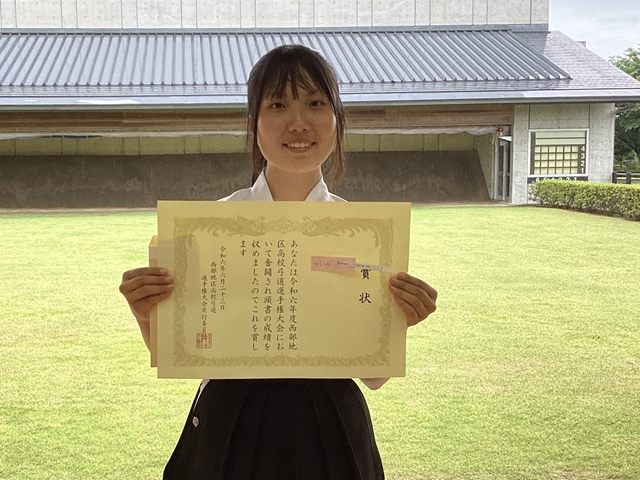 賞状
あなたは令和六年度西部地
区高校弓道選手権大会にお
いて奮闘され頭書の成績を
収めましたのでこれを賞し
ます
令和六年六月二十二日
西部地区高校弓道
選手権大会実行委員